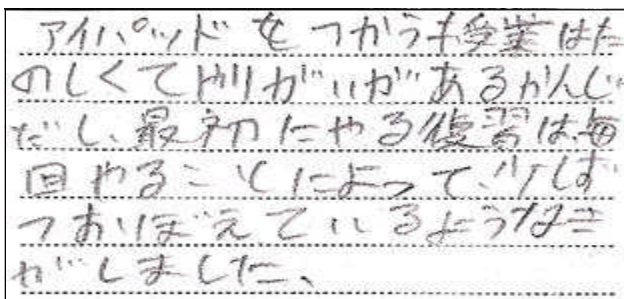 アイパッドをつかう授業はた
のしくてやりがいがあるかんじ
だし、最初にやる復習は毎
回やることによって、少しず
つおぼえているようなき
がしました、